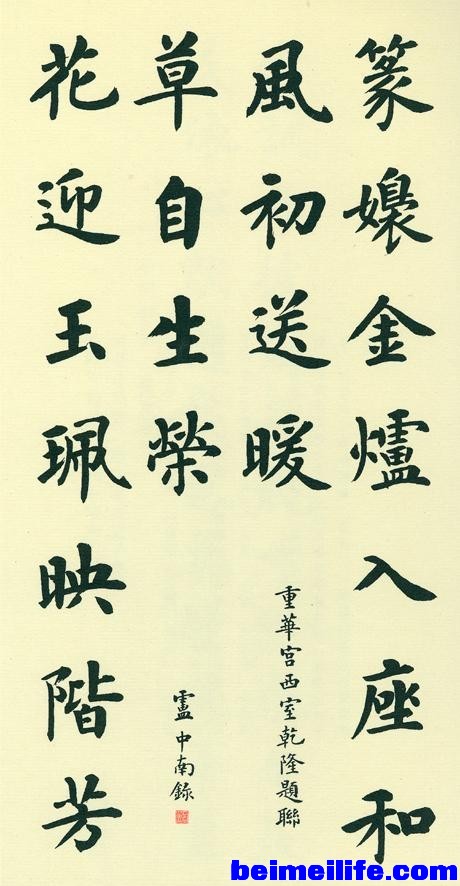 篆嬝金爐入座和
風初送暖
重華宮西室乾隆題聯
花迎玉珮映階芳
草自生榮
盧中南錄
beimeilife.com